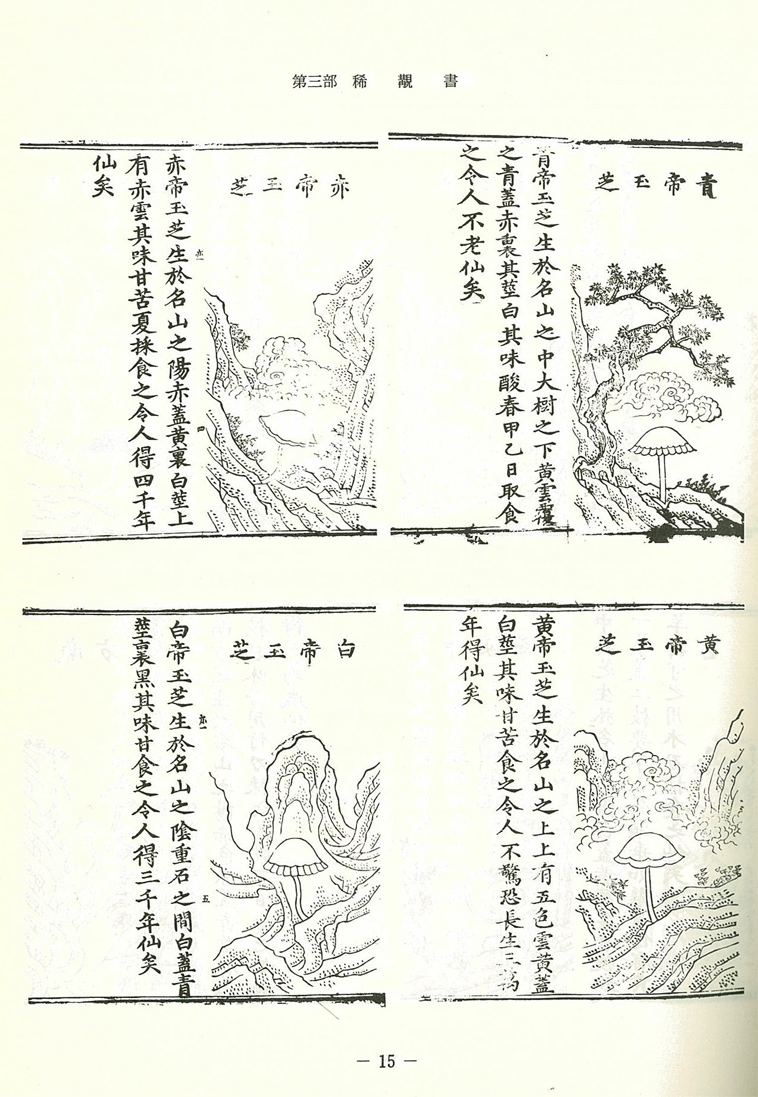 第三部 稀覯書
青帝玉芝
青帝玉芝生於名山之中大樹之下黃雲覆
之青蓋赤裏其莖白其味酸春甲乙日取食
之令人不老仙矣
赤帝玉芝
赤帝玉芝生於名山之陽赤蓋黃裏白莖上
有赤雲其味甘苦夏採食之令人得四千年
仙矣
四
黃帝玉芝
黃帝玉芝生於名山之上上有五色雲黃蓋
白莖其味甘苦食之令人不驚恐長生三萬
年得仙矣
白帝玉芝
白帝玉芝生於名山之陰重石之間白蓋青
莖裏黑其味甘食之令人得三千年仙矣
五
— 15 —